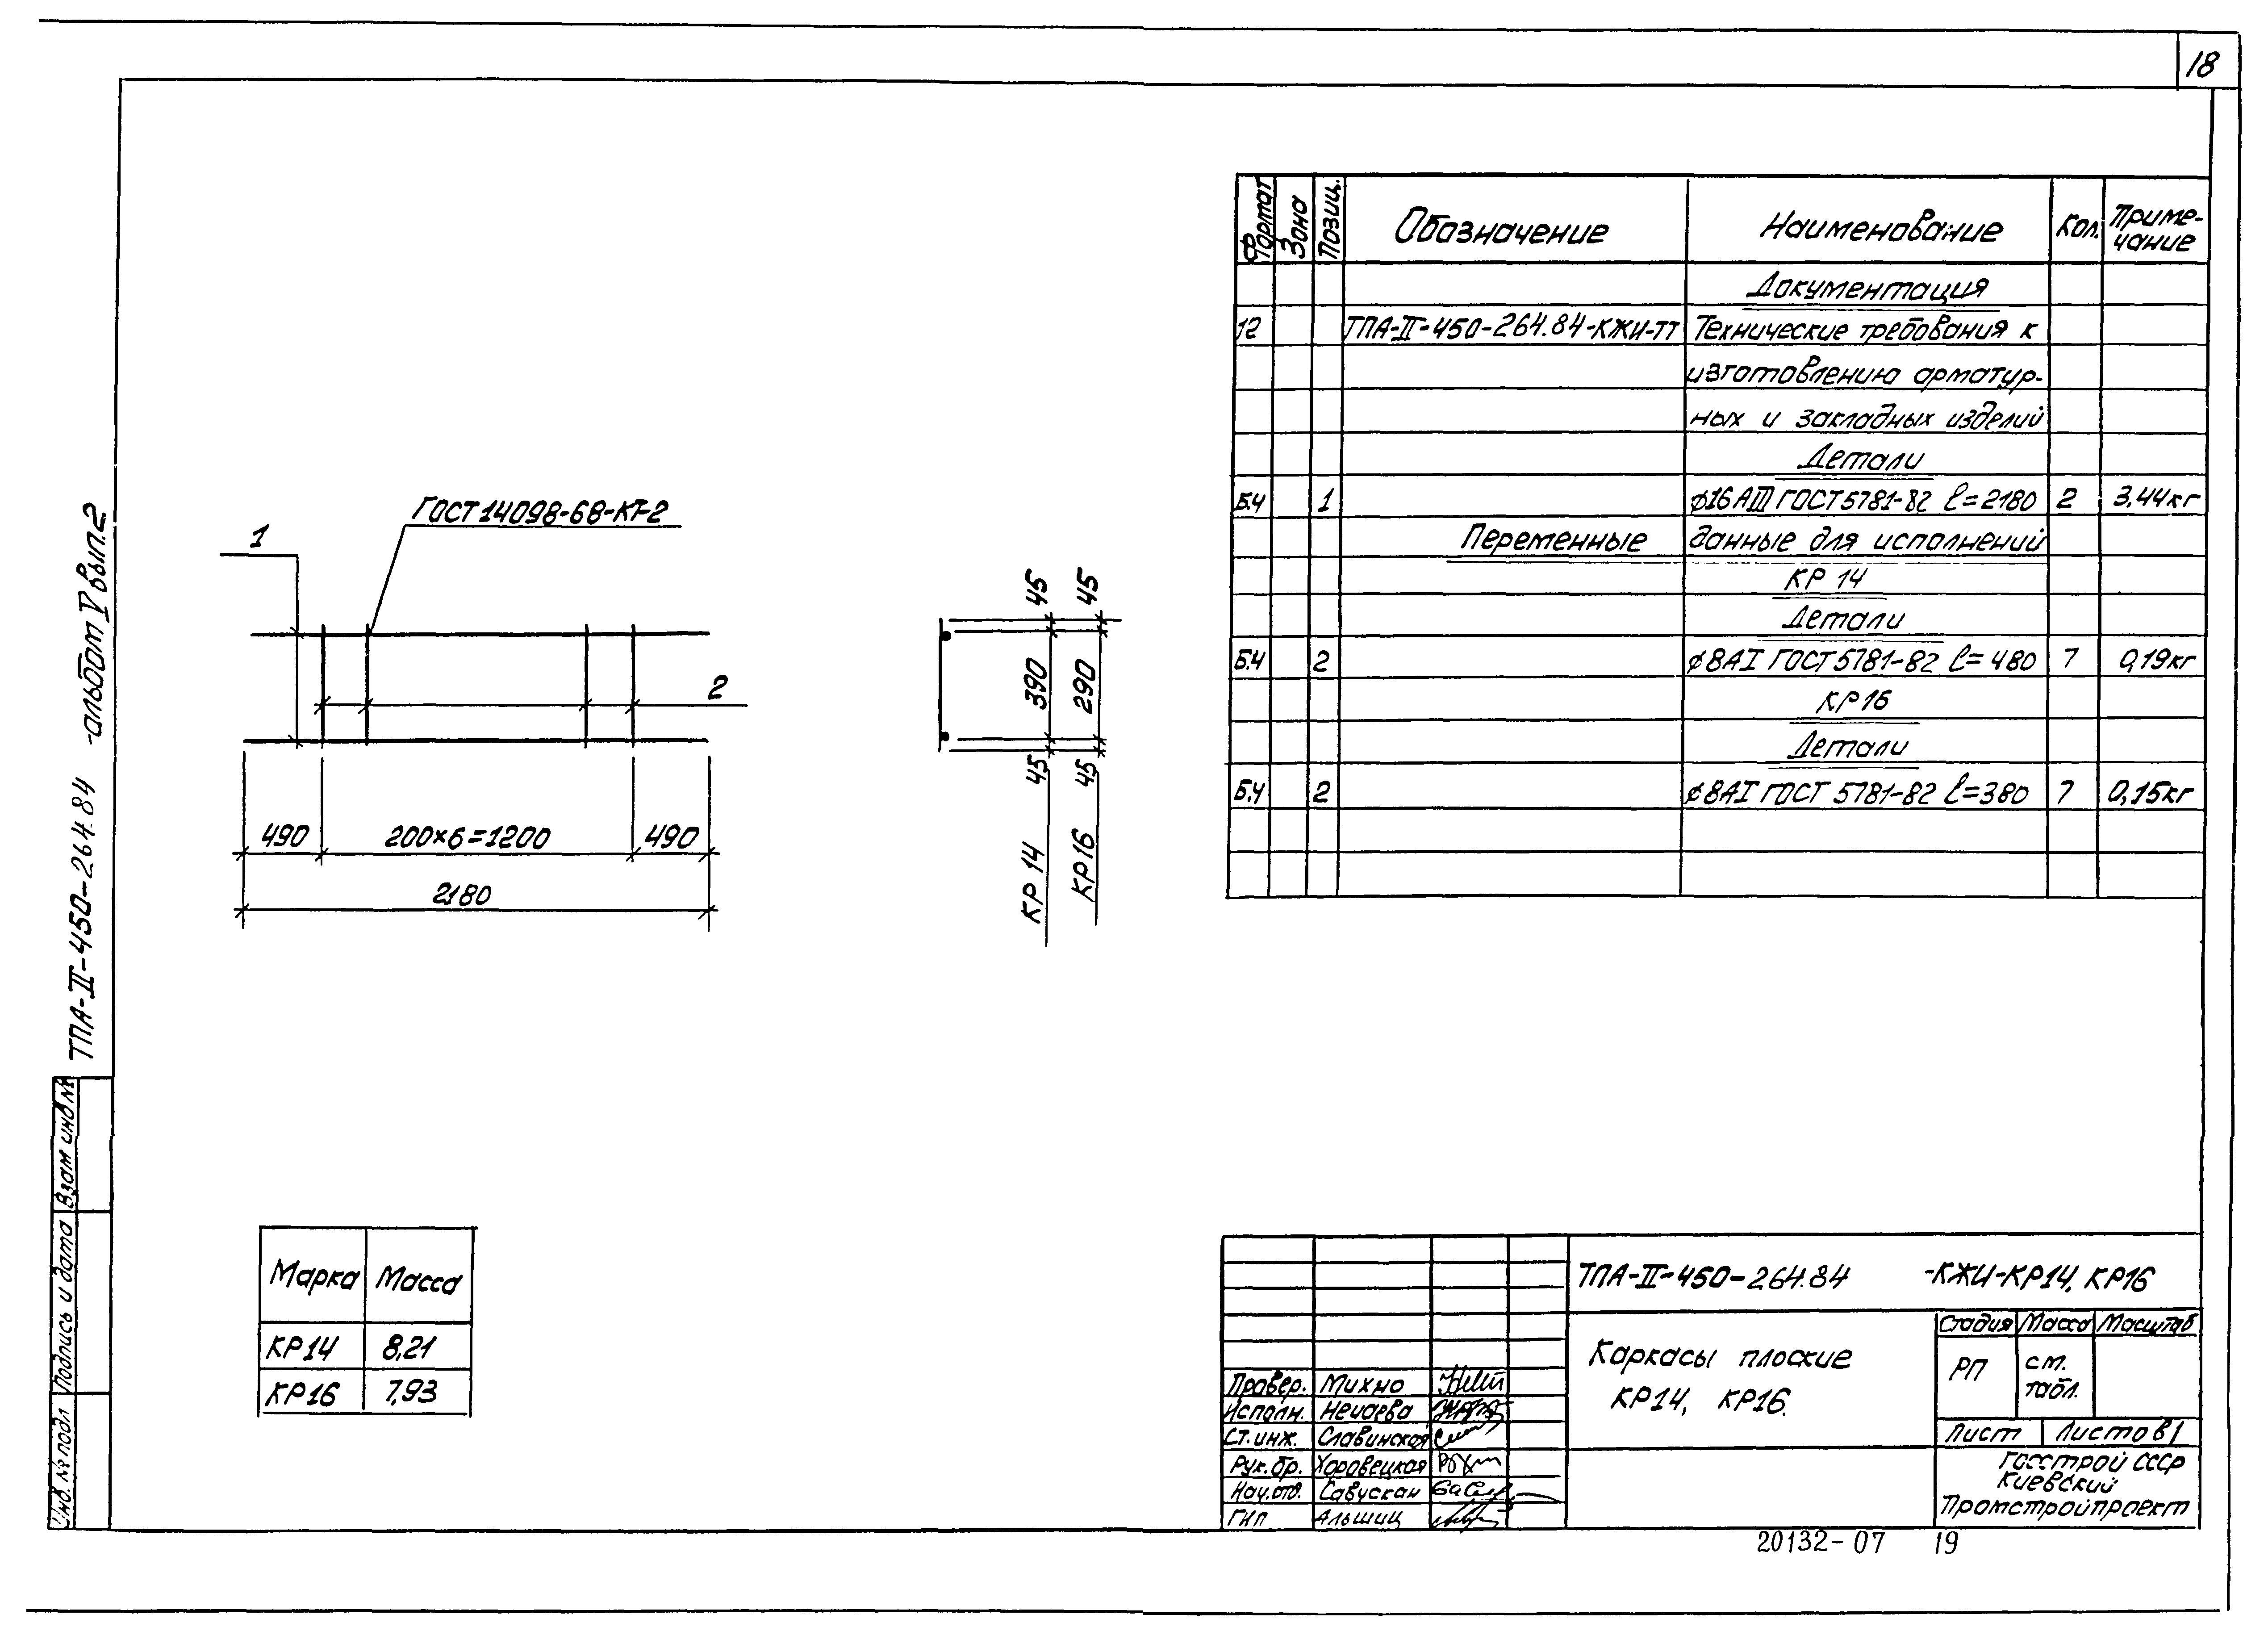 18
ТПА-II-450-264.84 -альбом V вып.2
ГОСТ 14098-68-КТ-2
1
2
490
200×6=1200
490
2180
45
45
390
290
45
45
КР 14
КР16
Формат
Зона
Позиц.
Обозначение
Наименование
Кол.
Приме-
чание
Документация
12 ТПА-II-450-264.84-КЖИ-ТТ Технические требования к
изготовлению арматур-
ных и закладных изделий
Детали
Б.Ч 1 ∅16АIII ГОСТ 5781-82 ℓ=2180 2 3,44кг
Переменные данные для исполнений
КР 14
Детали
Б.Ч 2 ∅8АI ГОСТ 5781-82 ℓ=480 7 0,19кг
КР16
Детали
Б.Ч 2 ∅8АI ГОСТ 5781-82 ℓ=380 7 0,15кг
Марка Масса
КР14 8,21
КР16 7,93
Взам инв №
Подпись и дата
Инв. № подл
ТПА-II-450-264.84 -КЖИ-КР14, КР16
Каркасы плоские
КР14, КР16.
Стадия Масса Масштаб
РП см.
табл.
Лист Листов 1
Госстрой СССР
Киевский
Промстройпроект
Провер. Михно
Исполн. Нечаева
Ст.инж. Славинская
Рук.бр. Хоровецкая
Нач.отд. Савускан
ГИП Альшиц
20132-07 19